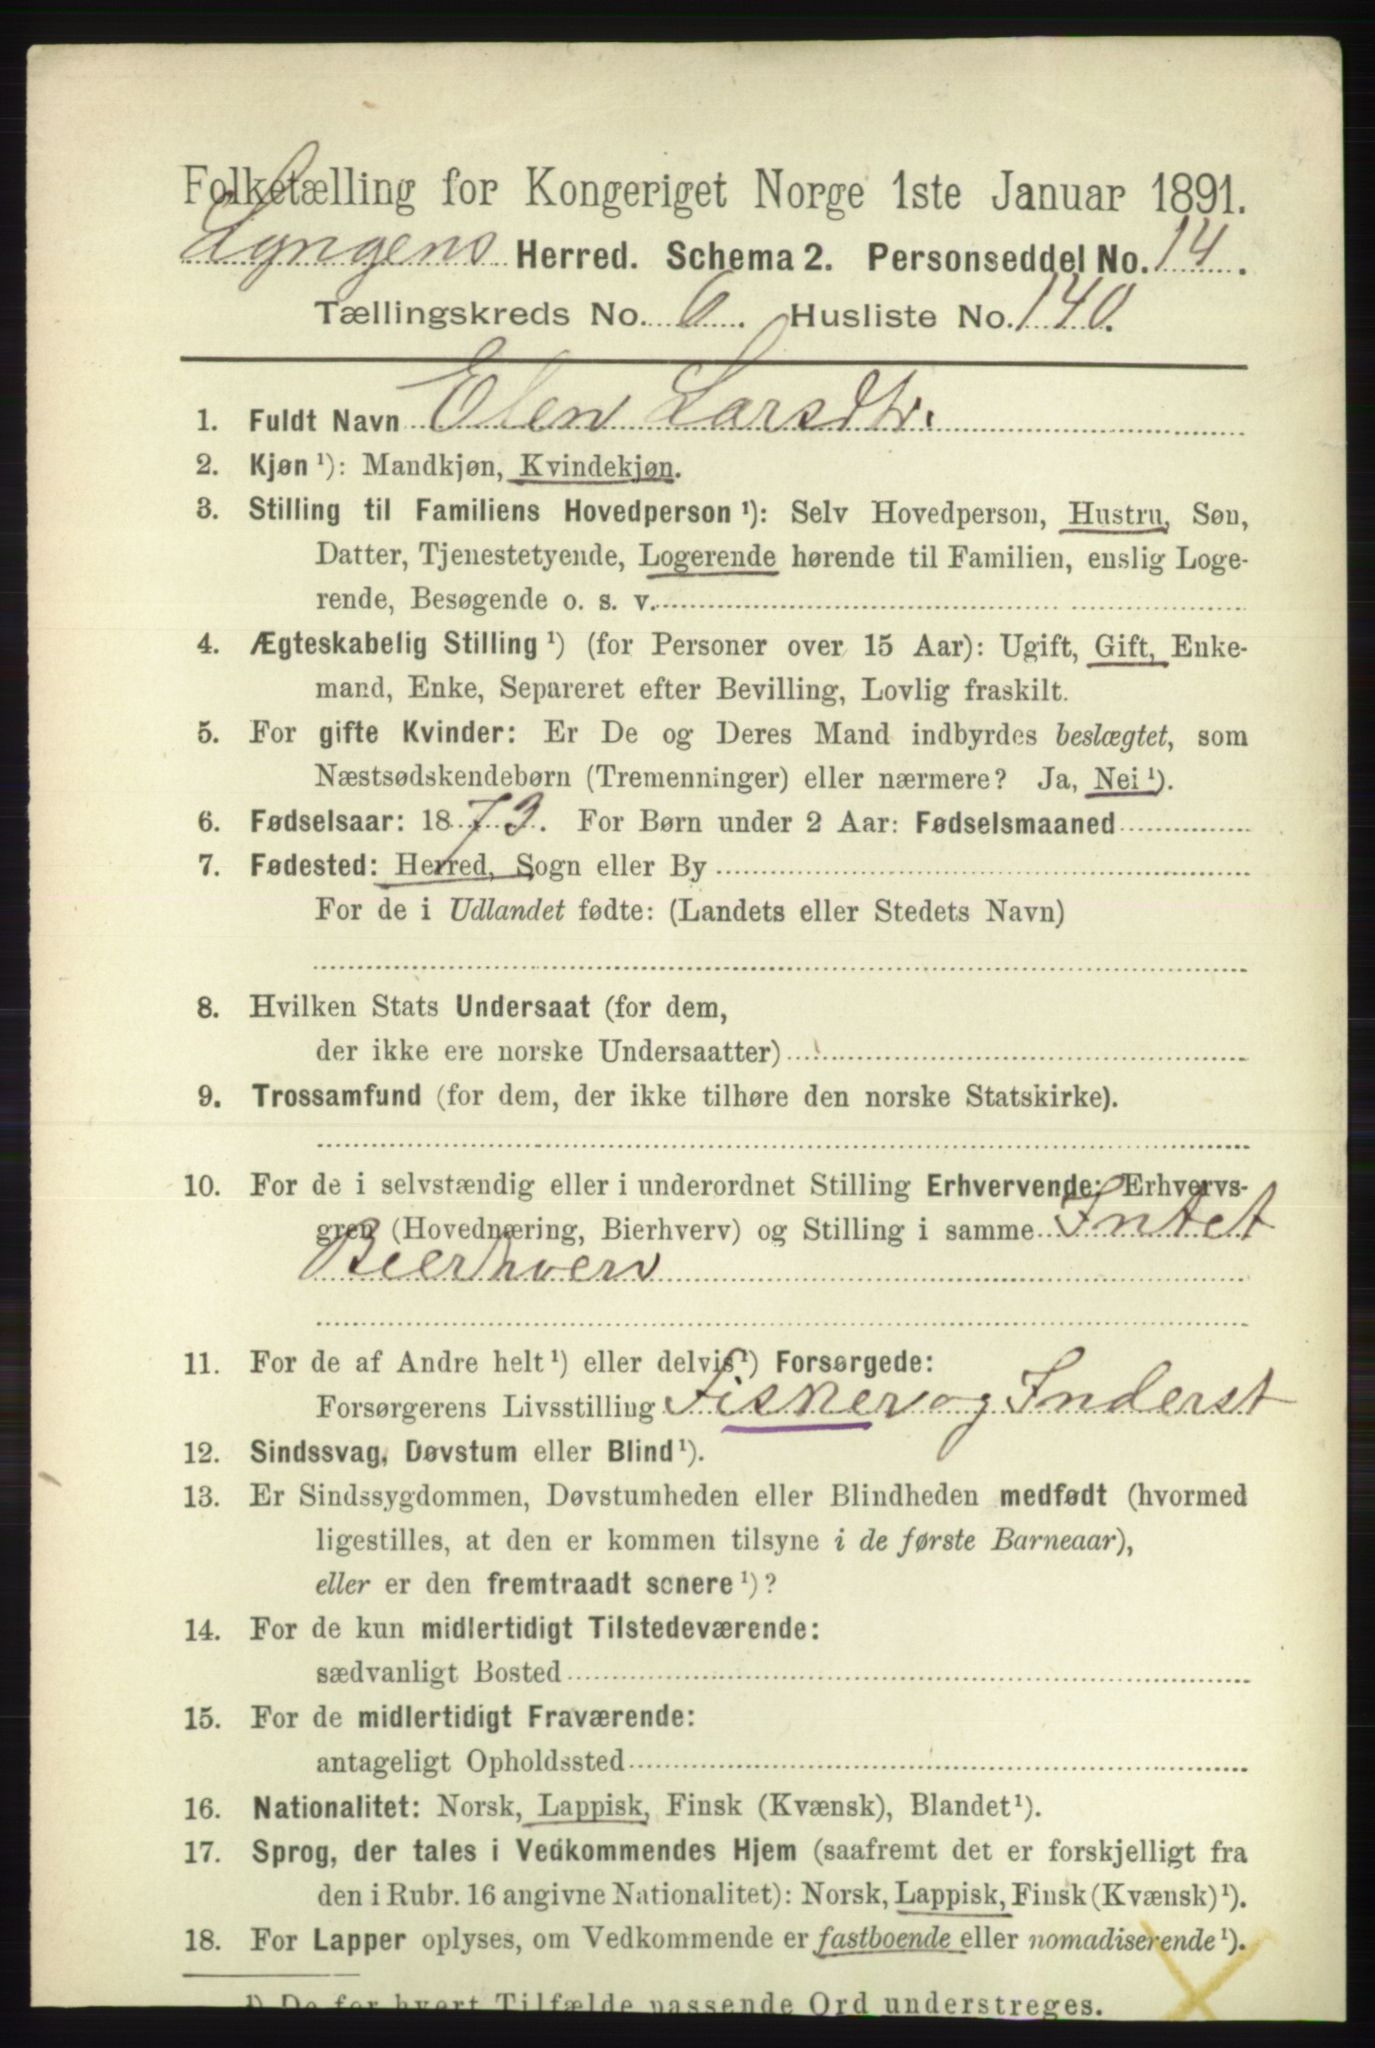 Folketælling for Kongeriget Norge 1ste Januar 1891.
Lyngens Herred. Schema 2. Personseddel No. 14.
Tællingskreds No. 6. Husliste No. 140.
1. Fuldt Navn Elen Larsdtr.
2. Kjøn ¹): Mandkjøn, Kvindekjøn.
3. Stilling til Familiens Hovedperson ¹): Selv Hovedperson, Hustru, Søn,
Datter, Tjenestetyende, Logerende hørende til Familien, enslig Loge-
rende, Besøgende o. s. v.
4. Ægteskabelig Stilling ¹) (for Personer over 15 Aar): Ugift, Gift, Enke-
mand, Enke, Separeret efter Bevilling, Lovlig fraskilt.
5. For gifte Kvinder: Er De og Deres Mand indbyrdes beslægtet, som
Næstsødskendebørn (Tremenninger) eller nærmere? Ja, Nei ¹).
6. Fødselsaar: 1873. For Børn under 2 Aar: Fødselsmaaned
7. Fødested: Herred, Sogn eller By
For de i Udlandet fødte: (Landets eller Stedets Navn)
8. Hvilken Stats Undersaat (for dem,
der ikke ere norske Undersaatter)
9. Trossamfund (for dem, der ikke tilhøre den norske Statskirke).
10. For de i selvstændig eller i underordnet Stilling Erhvervende: Erhvervs-
gren (Hovednæring, Bierhverv) og Stilling i samme Intet
Bierhverv
11. For de af Andre helt ¹) eller delvis ¹) Forsørgede:
Forsørgerens Livsstilling Fisker og Inderst
12. Sindssvag, Døvstum eller Blind ¹).
13. Er Sindssygdommen, Døvstumheden eller Blindheden medfødt (hvormed
ligestilles, at den er kommen tilsyne i de første Barneaar),
eller er den fremtraadt senere ¹)?
14. For de kun midlertidigt Tilstedeværende:
sædvanligt Bosted
15. For de midlertidigt Fraværende:
antageligt Opholdssted
16. Nationalitet: Norsk, Lappisk, Finsk (Kvænsk), Blandet ¹).
17. Sprog, der tales i Vedkommendes Hjem (saafremt det er forskjelligt fra
den i Rubr. 16 angivne Nationalitet): Norsk, Lappisk, Finsk (Kvænsk) ¹).
18. For Lapper oplyses, om Vedkommende er fastboende eller nomadiserende ¹).
¹) De for hvert Tilfælde passende Ord understreges.